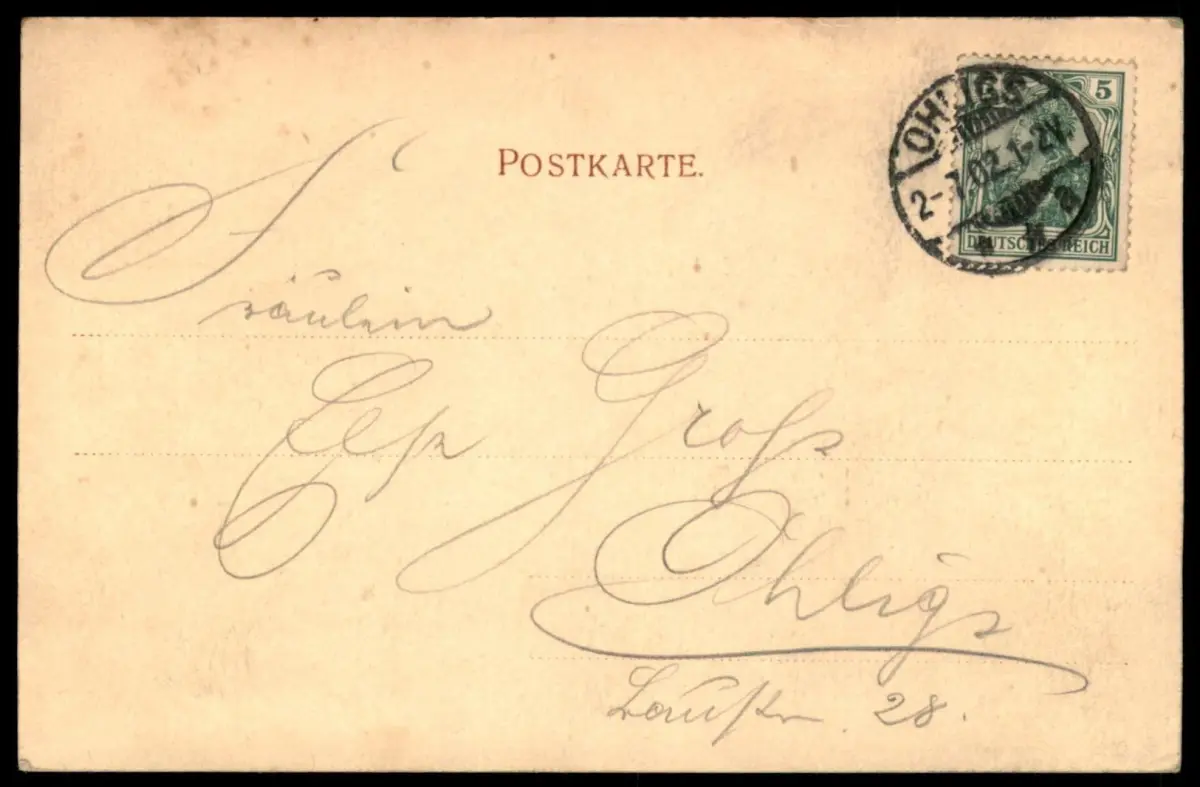 POSTKARTE.
5
OHLIGS
2-1.02.1-2V.
DEUTSCHES REICH
Fräulein
Groß
Ohligs
28.